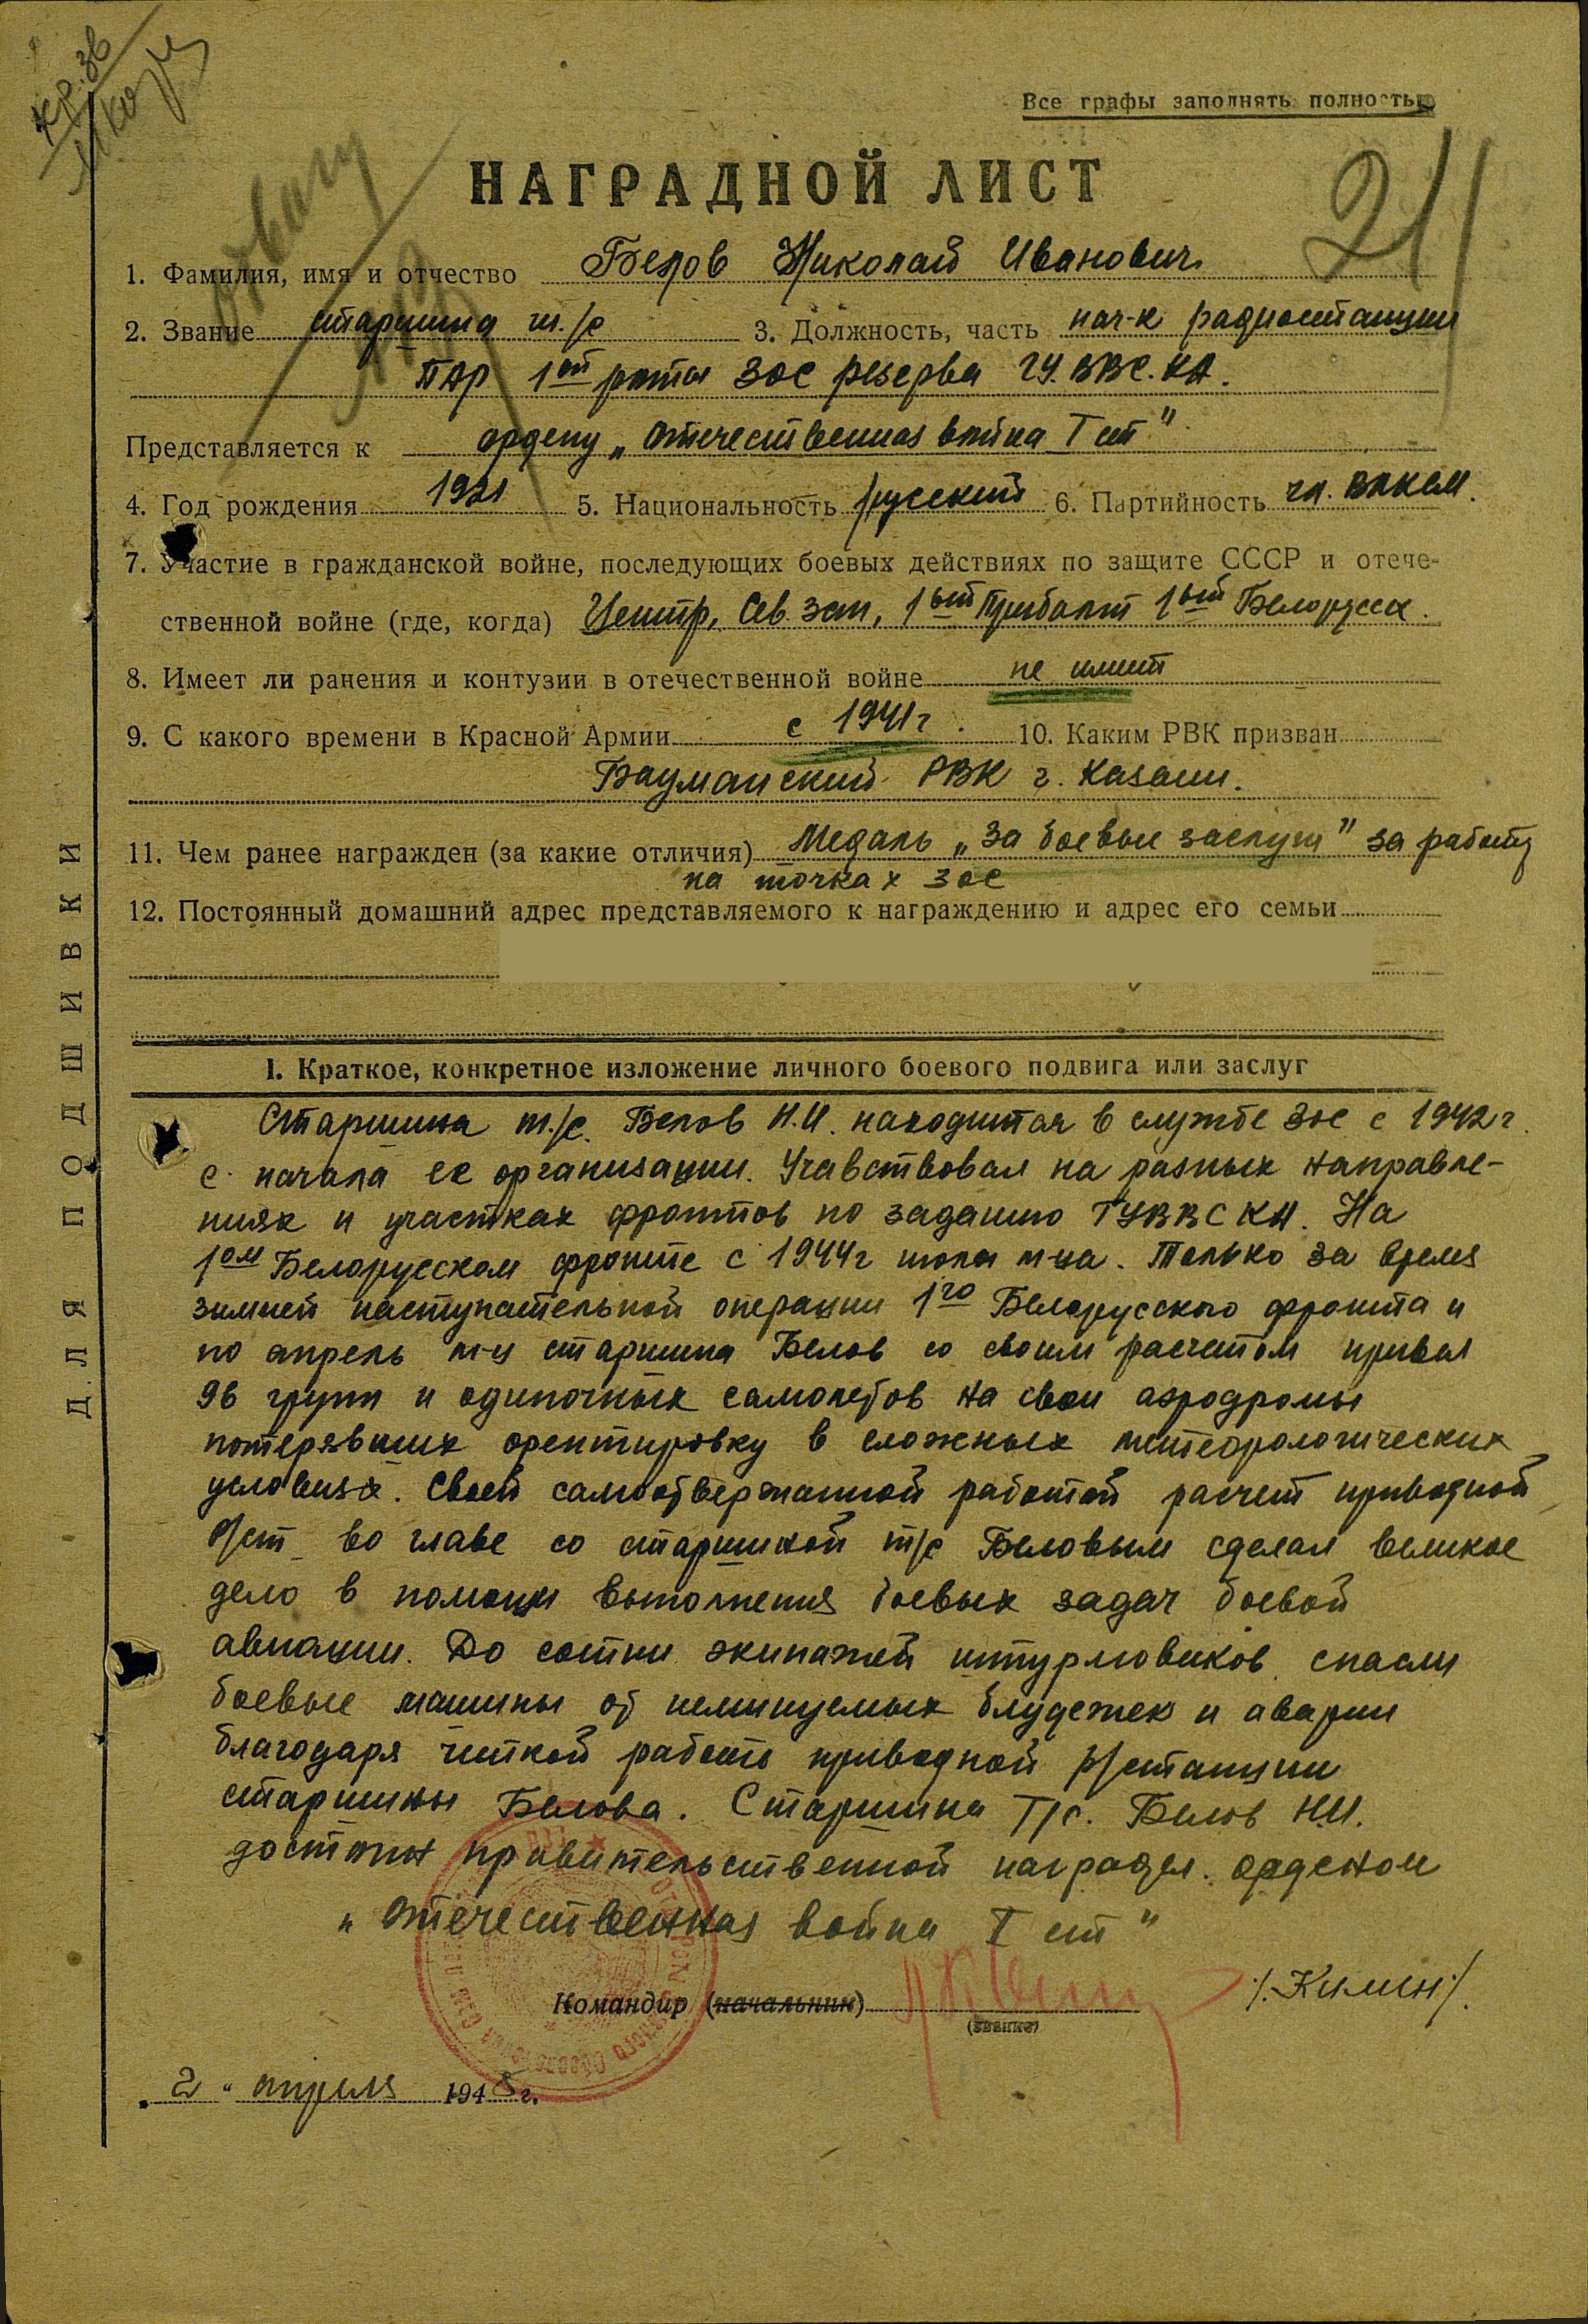 Кр. Зв
Все графы заполнять полностью
21
НАГРАДНОЙ ЛИСТ
1. Фамилия, имя и отчество Белов Николай Иванович
2. Звание старшина т./с 3. Должность, часть нач-к радиостанции
ПАР 1ой роты ЗОС резерва ГУ. ВВС. КА.
Представляется к ордену „Отечественная война I ст"
4. Год рождения 1921 5. Национальность русский 6. Партийность чл. ВЛКСМ.
7. Участие в гражданской войне, последующих боевых действиях по защите СССР и отече-
ственной войне (где, когда) Центр, Сев. зап, 1ый Прибалт 1ый Белорусск.
8. Имеет ли ранения и контузии в отечественной войне не имеет
9. С какого времени в Красной Армии с 1941г. 10. Каким РВК призван
Бауманский РВК г. Казани.
11. Чем ранее награжден (за какие отличия) Медаль „За боевые заслуги" за работу
на точках ЗОС
12. Постоянный домашний адрес представляемого к награждению и адрес его семьи
I. Краткое, конкретное изложение личного боевого подвига или заслуг
Старшина т./с. Белов Н.И. находится в службе ЗОС с 1942г.
с начала ее организации. Учавствовал на разных направле-
ниях и участках фронтов по заданию ГУВВС КА. На
1ом Белорусском фронте с 1944г июля м-ца. Только за время
зимней наступательной операции 1го Белорусского фронта и
по апрель м-ц старшина Белов со своим расчетом привел
96 групп и одиночных самолетов на свои аэродромы
потерявших орентировку в сложных метеорологических
условиях. Своей самоотверженной работой расчет приводной
р/ст во главе со старшиной т/с Беловым сделал великое
дело в помощи выполнения боевых задач боевой
авиации. До сотни экипажей штурмовиков спасли
боевые машины от неминуемых блудежек и аварии
благодаря четкой работе приводной р/станции
старшины Белова. Старшина Т/с. Белов Н.И.
достоин правительственной награды. орденом
„Отечественная война I ст"
Командир (начальник) /.Кимен/.
(звание)
„2" апреля 1945 г.
ДЛЯ ПОДШИВКИ